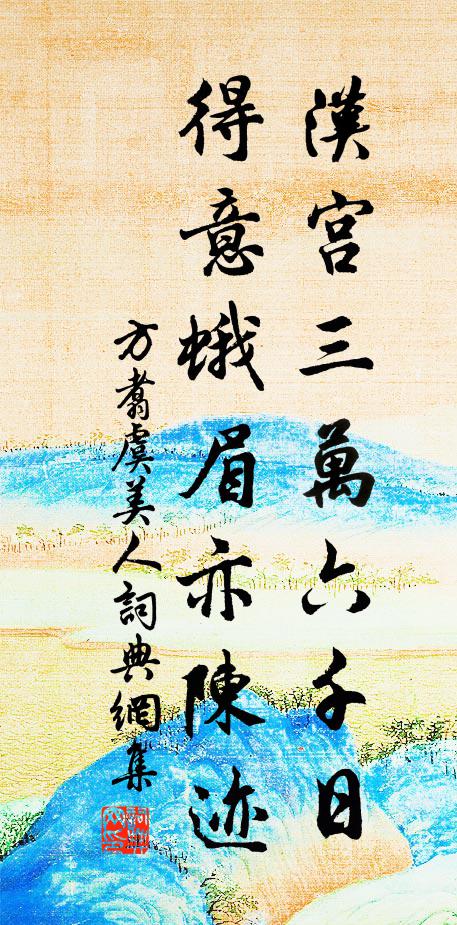 漢宮三萬六千日
得意蛾眉亦陳迹
方翥虞美人詞典網集